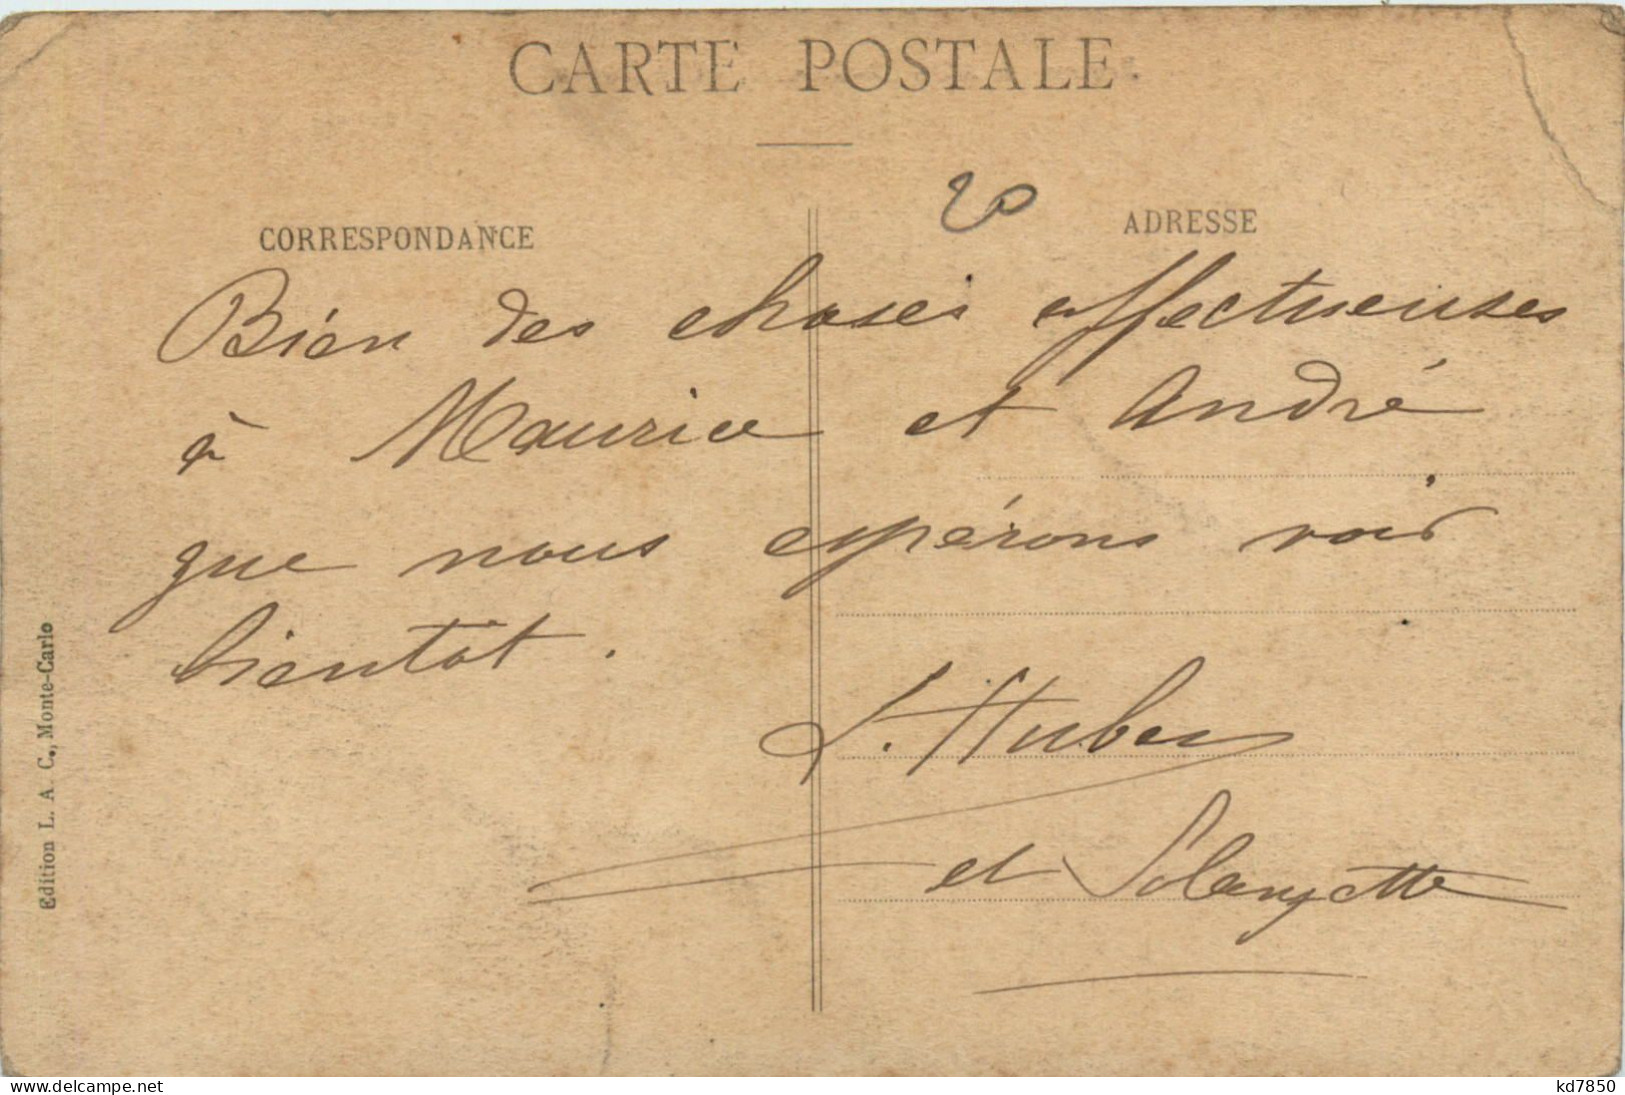 CARTE POSTALE
20
CORRESPONDANCE
ADRESSE
Bien des choses affectueuses
à Maurice et André
que nous espérons voir
bientôt.
et Solangette
Edition L. A. C., Monte-Carlo
www.delcampe.net
kd7850